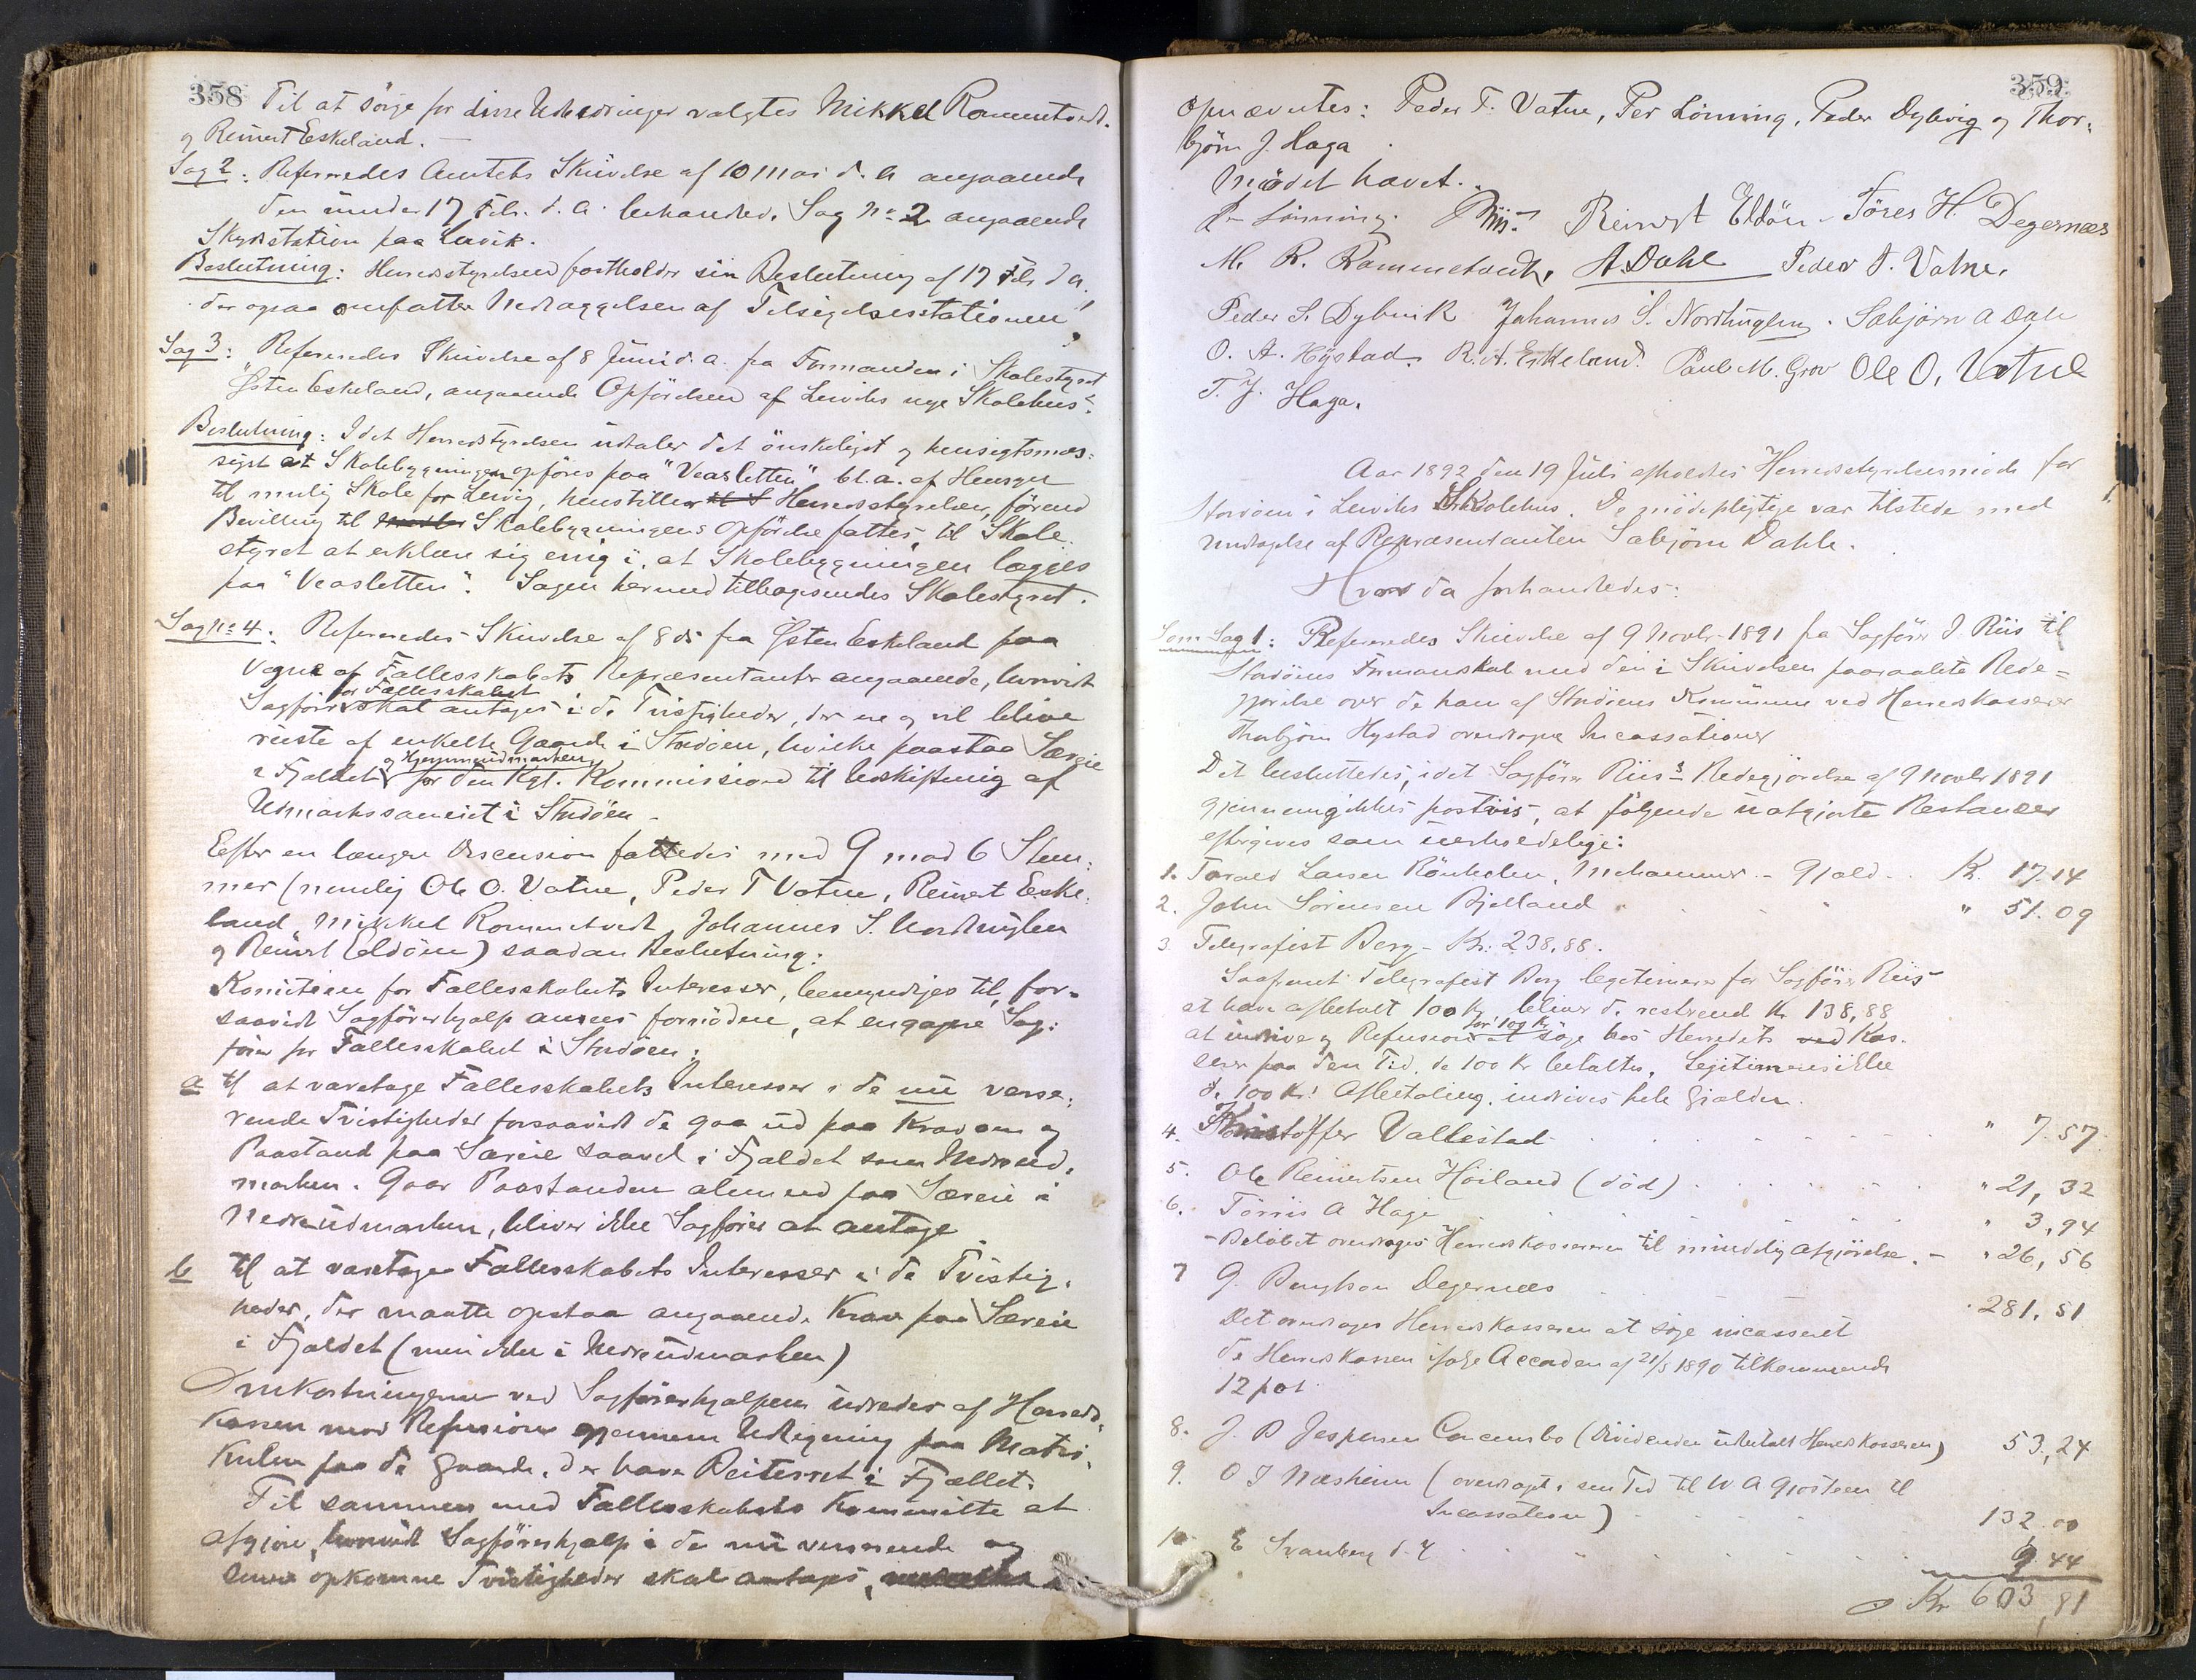 358
Til at sörge for disse Udbedringer valgtes Mikkel Rommetvedt.
og Reinert Eskeland. —
Sag 2: Refereredes Amtets Skrivelse af 10 Mai d. A angaaende
den under 17 Feb. d. A. behandled. Sag No 2 angaaende
Skydsstation paa Lervik.
Beslutning: Herredsstyrelsen fastholder sin Beslutning af 17 Feb d A.
der ogsaa omfatter Nedlæggelsen af Tilsigelsesstationen!
Sag 3: Refereredes Skrivelse af 8 Juni d. a. fra Formanden i Skolestyret
Østen Eskeland, angaaende Opförelsen af Lerviks nye Skolehus.
Beslutning: Idet Herredsstyrelsen udtaler det önskeligst og hensigtsmæs=
sigst at Skolebygningen opföres paa "Veasletten" bl. a. af Hensyn
til mulig Skole for Lervig, henstiller Herredsstyrelsen, förend
Bevilling til Skolebygningens Opförelse fattes, til Skole
styret at erklære sig enig i, at Skolebygningen lægges
paa "Veasletten". Sagen hermed tilbagesendes Skolestyret.
Sag No 4: Refereredes Skrivelse af 8 ds fra Østen Eskeland paa
Vegne af Fællesskabets Repræsentanter angaaende, hvorvidt
for Fællesskabet
Sagförer skal antages i de Tvistigheder, der ere og vil blive
reiste af enkelte Gaarde i Stordöen, hvilke paastaa Særeie
og Hjemmeudmarken
i Fjeldet for den Kgl. Kommission til Udskiftning af
Udmarkssameiet i Stordöen —
Efter en længere Discusion fattedes med 9 mod 6 Stem=
mer (nemlig Ole O. Vatne, Peder T Vatne, Reinert Eske=
land, Mikkel Rommetvedt, Johannes S. Nordhuglen
og Reinert Eldöen) saadan Beslutning:
Komiteen for Fællesskabets Interesser, bemyndiges til, for=
saavidt Sagförerhjælp ansees fornödne, at engagere Sag=
förer for Fællesskabet i Stordöen:
a til at varetage Fællesskabets Interesser i de nu verse=
rende Tvistigheder forsaavidt de gaa ud paa Krav om og
Paastand paa Særeie saavel i Fjeldet som Nedreud=
marken. Gaar Paastanden alene ud paa Særeie i
Nedreudmarken, bliver ikke Sagförer at antage
b til at varetage Fællesskabets Interesser i de Tvistig=
heder, der maatte opstaa angaaende Krav paa Særeie
i Fjeldet (men ikke i Nedreudmarken)
Omkostningerne ved Sagförerhjælpen udredes af Herreds=
kassen mod Refusion gjennem Udligning paa Matri=
kulen paa de Gaarde, der have Beiterret i Fjellet.
Til sammen med Fællesskabets Kommitte at
afgjöre, hvorvidt Sagförerhjælp i de nu verserende og
senere opkomne Tvistigheder skal antages,
359
opnævntes: Peder T. Vatne, Per Lönning, Peder Dybvig og Thor=
björn J. Haga.
Mödet hævet.
P. Lönning. Riis. Reinert Eldöen Töres H. Degernæs
M. R. Rommetvedt, A. Dahl Peder T. Vatne.
Peder S. Dybvik Johannes S. Nordhuglen. Sæbjörn A Dale
O. A. Hystad. R. A. Eskeland. Paul M. Grov Ole O. Vatne
T. J. Haga.
Aar 1892 den 19 Juli afholdtes Herredsstyrelsesmöde for
Stordöen i Lerviks Skolehus. De mödepligtige var tilstede med
Undtagelse af Repræsentanten Sæbjörn Dahle.
Hvor da forhandledes:
Som Sag 1: Refereredes Skrivelse af 9 Novbr 1891 fra Sagförer J. Riis til
Stordöens Formanskab med den i Skrivelsen paaraabte Rede=
gjörelse over de ham af Stordöens Kommune ved Herredskasserer
Thorbjörn Hystad overdragne Incassationer
Det besluttedes, idet Sagförer Riis's Redegjörelse af 9 Novbr 1891
gjennemgikkes postvis, at fölgende uafgjorte Restancer
eftergives som uerholdelige:
1. Tarald Larsen Rönholm, Mehammer - Gjæld.. Kr. 17.14
2. John Sörensen Bjelland " 51.09
3. Telegrafist Berg - Kr: 238,88.
Saafremt Telegrafist Berg legitimerer for Sagförer Riis
at have afbetalt 100 Kr, bliver de resterend Kr 138,88
for 100 Kr
at indrive og Refusion at söge hos Herredets Kas=
serer paa den Tid, de 100 Kr betaltes. Legitimeres ikke
de 100 Kr! Afbetaling, indrives hele Gjælden.
4. Kristoffer Vallestad " 7.57
5. Ole Reinertsen Höiland (död) " 21,32
6. Törris A Hage " 3,94
- Belöbet overdrages Herredskassereren til mindelig Afgjörelse. - " 26,56
7 G. Bengtson Degernæs 281,51
Det overdrages Herredskasseren at söge incasseret
de Herredskassen ifölge Accorden af 21/5 1890 tilkommende
12 pct.
8. J. B Jespersen (Dividenden udbetalt Herredskasseren) 53,24
9. O J Næsheim (overdraget i sin Tid til W A Gjösteen til
Incassation) 132,00
10 E Svanberg d. y. 9.44
Kr 603,81